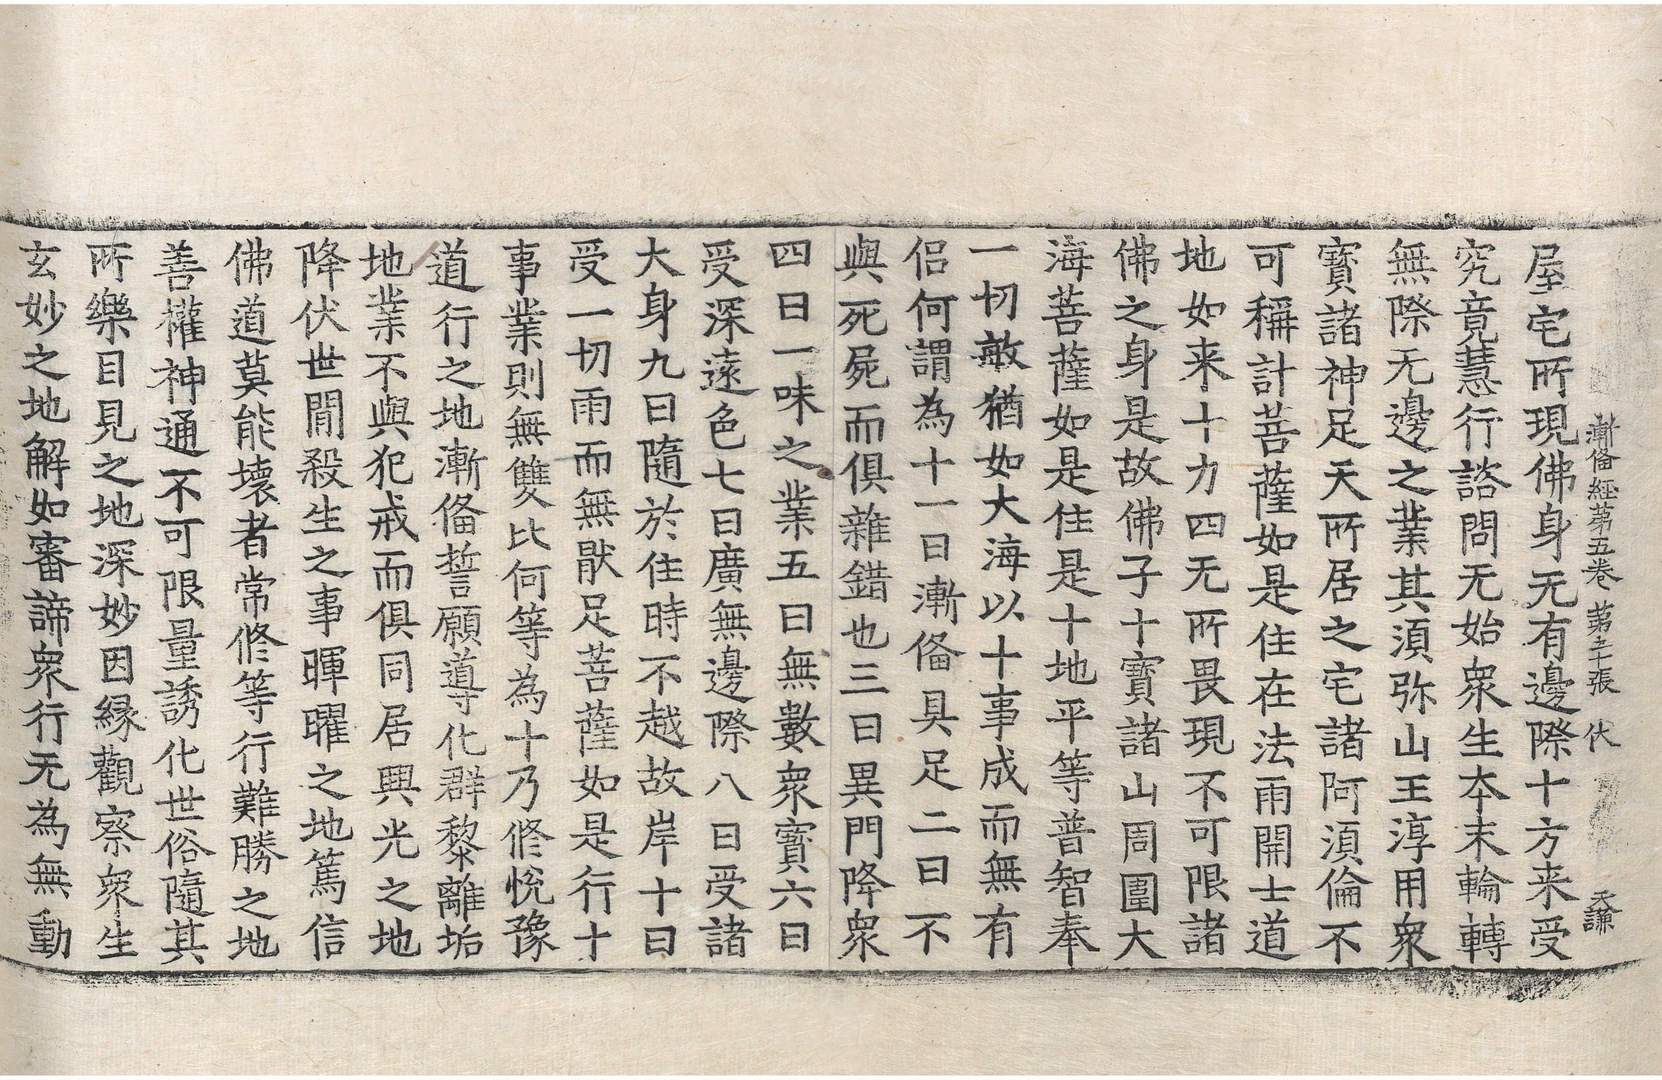 漸俻經第五卷 第二十張 伏 天謙
屋宅所現佛身无有邊際十方来受
究竟慧行諮問无始衆生夲末輪轉
無際无邊之業其須弥山王淳用衆
寶諸神足天所居之宅諸阿湏倫不
可稱計菩薩如是住在法雨開士道
地如来十力四无所畏現不可限諸
佛之身是故佛子十寶諸山周圍大
海菩薩如是住是十地平等普智奉
一切敏猶如大海以十事成而無有
侣何謂為十一曰漸俻具足二曰不
與死屍而俱雜錯也三曰異門降衆
四曰一味之業五曰無數衆寶六曰
受深遠色七曰廣無邊際八曰受諸
大身九曰隨於住時不越故岸十曰
受一切雨而無猒足菩薩如是行十
事業則無雙比何等為十乃修悅豫
道行之地漸俻誓願導化群黎離垢
地業不與犯戒而俱同居興光之地
降伏世間殺生之事暉曜之地篤信
佛道莫能壞者常修等行難勝之地
善權神通不可限量誘化世俗隨其
所樂目見之地深妙因縁觀察衆生
玄妙之地解如審諦衆行无為無動